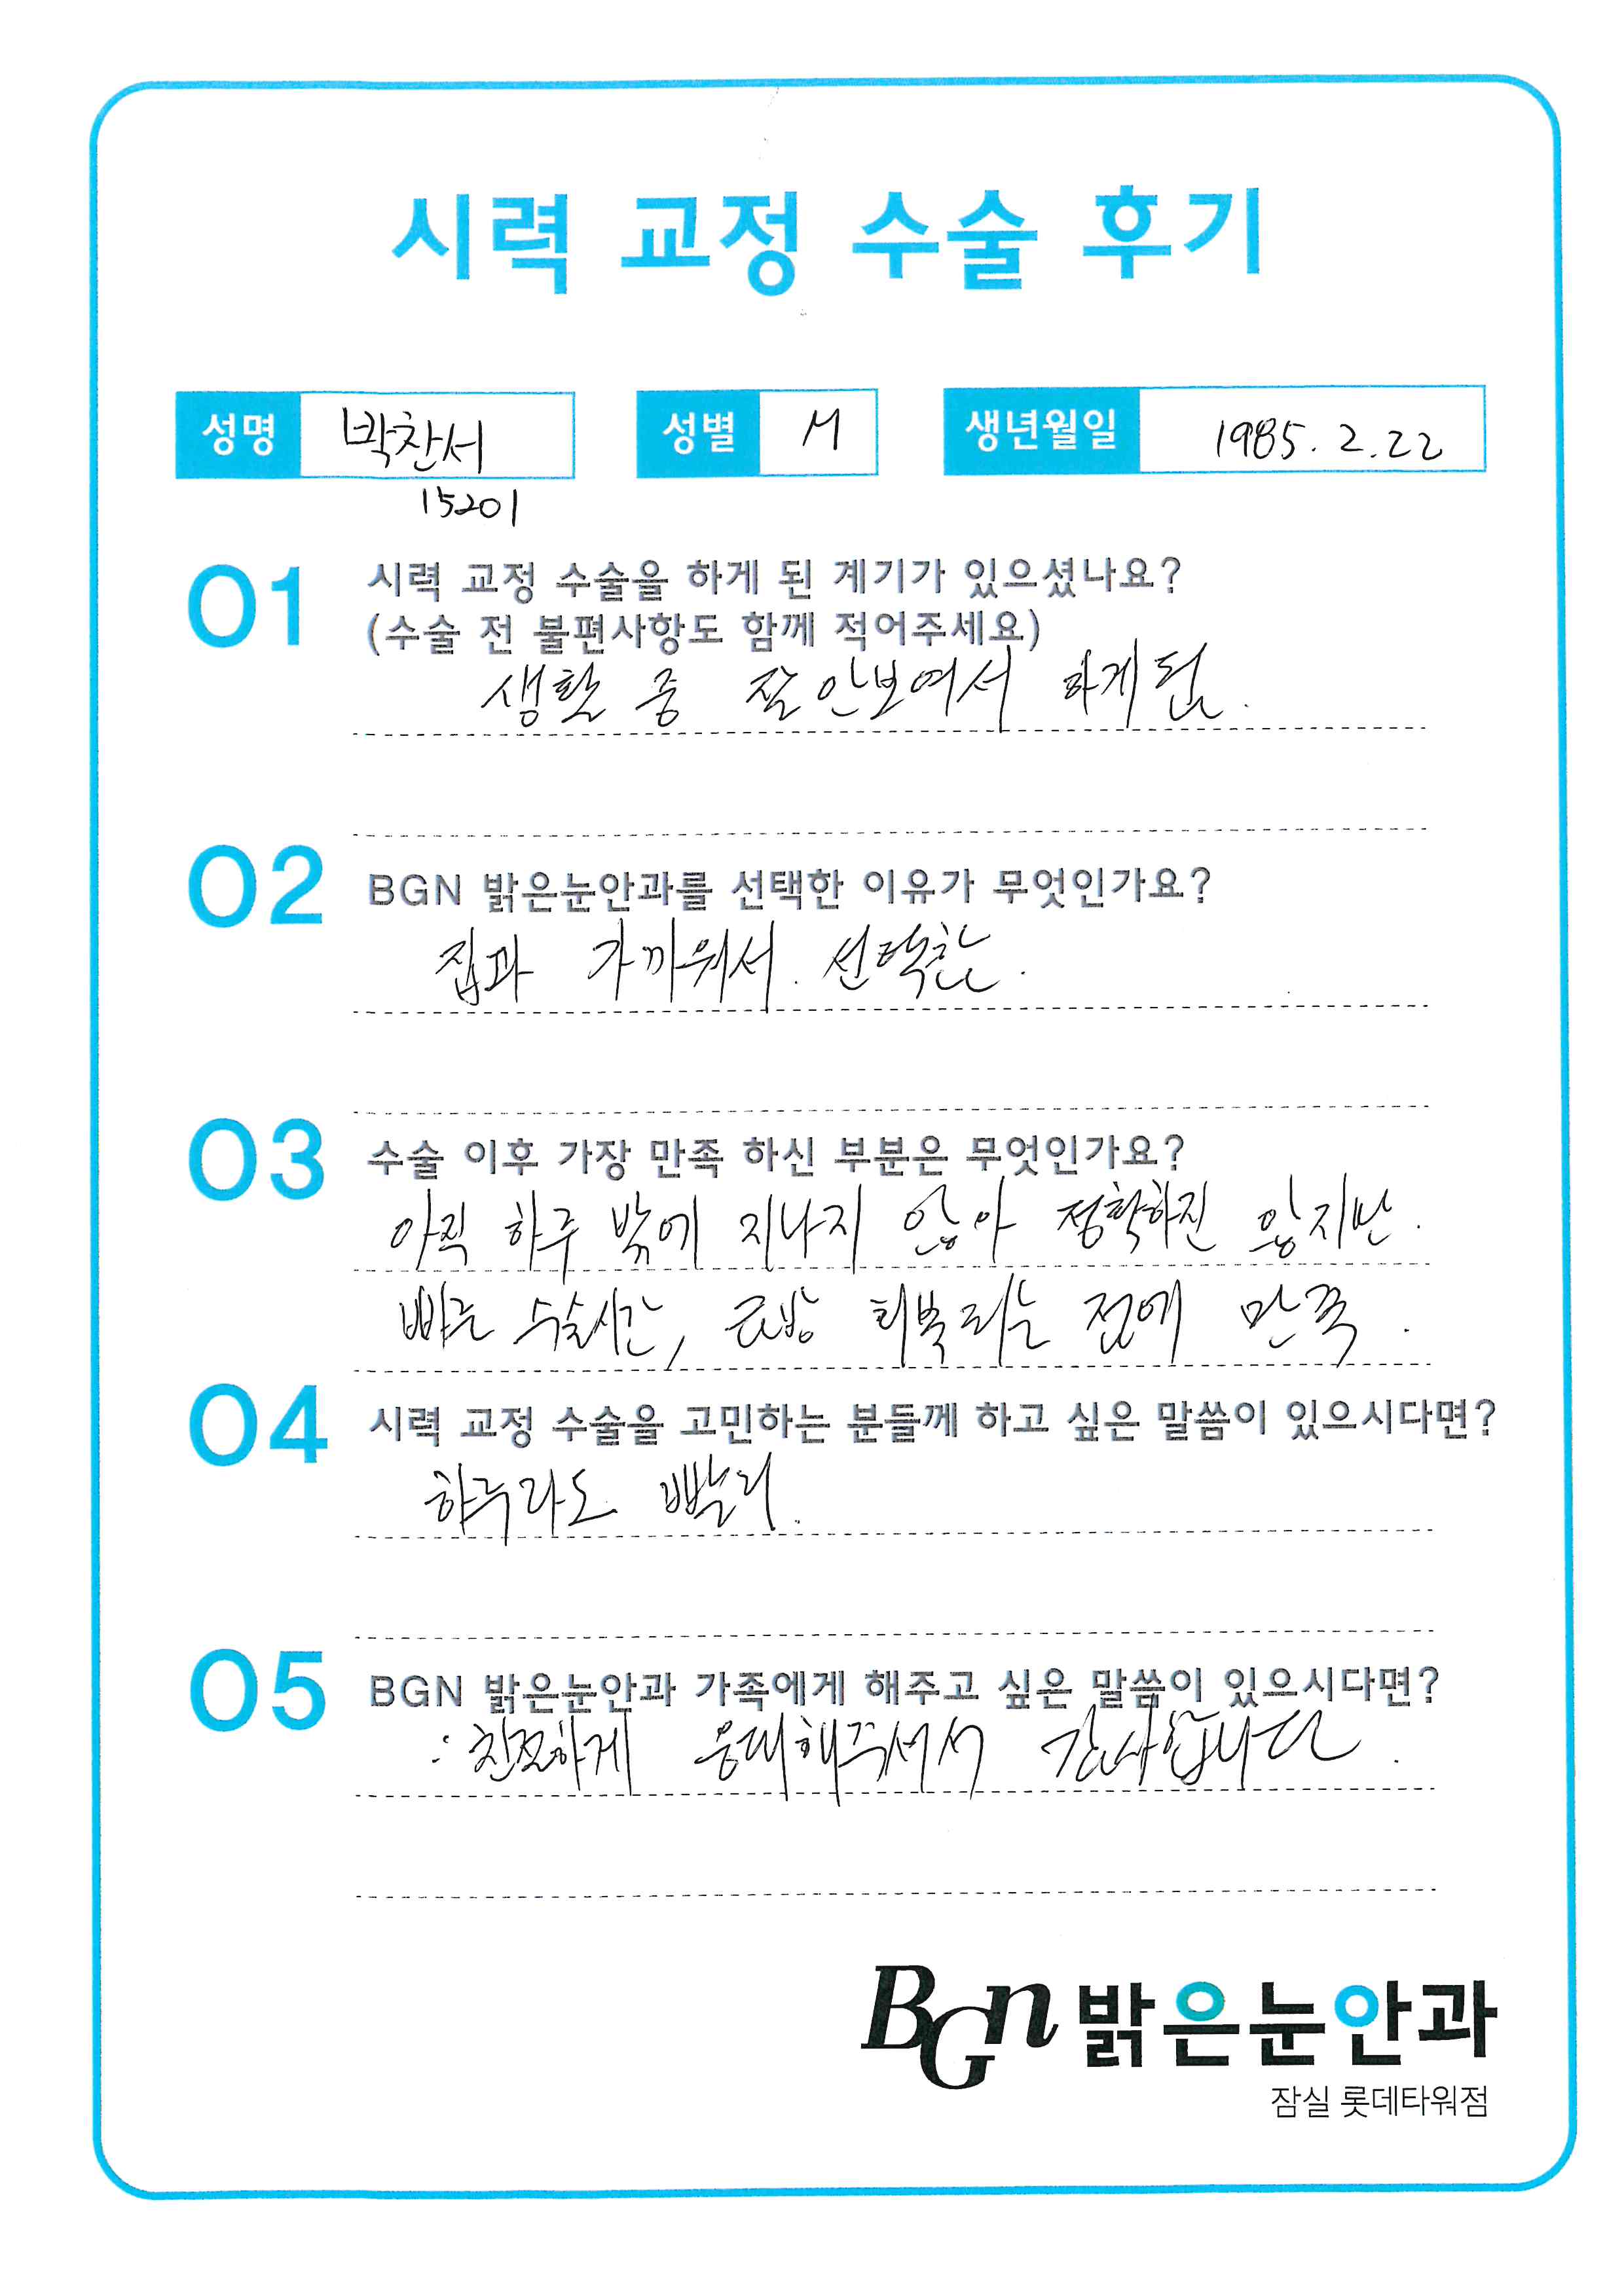 시력 교정 수술 후기
성명 박찬서 성별 M 생년월일 1985. 2. 22
15201
01 시력 교정 수술을 하게 된 계기가 있으셨나요?
(수술 전 불편사항도 함께 적어주세요)
생활 중 잘 안보여서 하게됨.
02 BGN 밝은눈안과를 선택한 이유가 무엇인가요?
집과 가까워서. 선택함.
03 수술 이후 가장 만족 하신 부분은 무엇인가요?
아직 하루 밖에 지나지 않아 정확하진 않지만.
빠른 수술시간, 금방 회복되는 점에 만족.
04 시력 교정 수술을 고민하는 분들께 하고 싶은 말씀이 있으시다면?
하루라도 빨리.
05 BGN 밝은눈안과 가족에게 해주고 싶은 말씀이 있으시다면?
: 친절하게 응대해주셔서 감사합니다.
BGN 밝은눈안과
잠실 롯데타워점